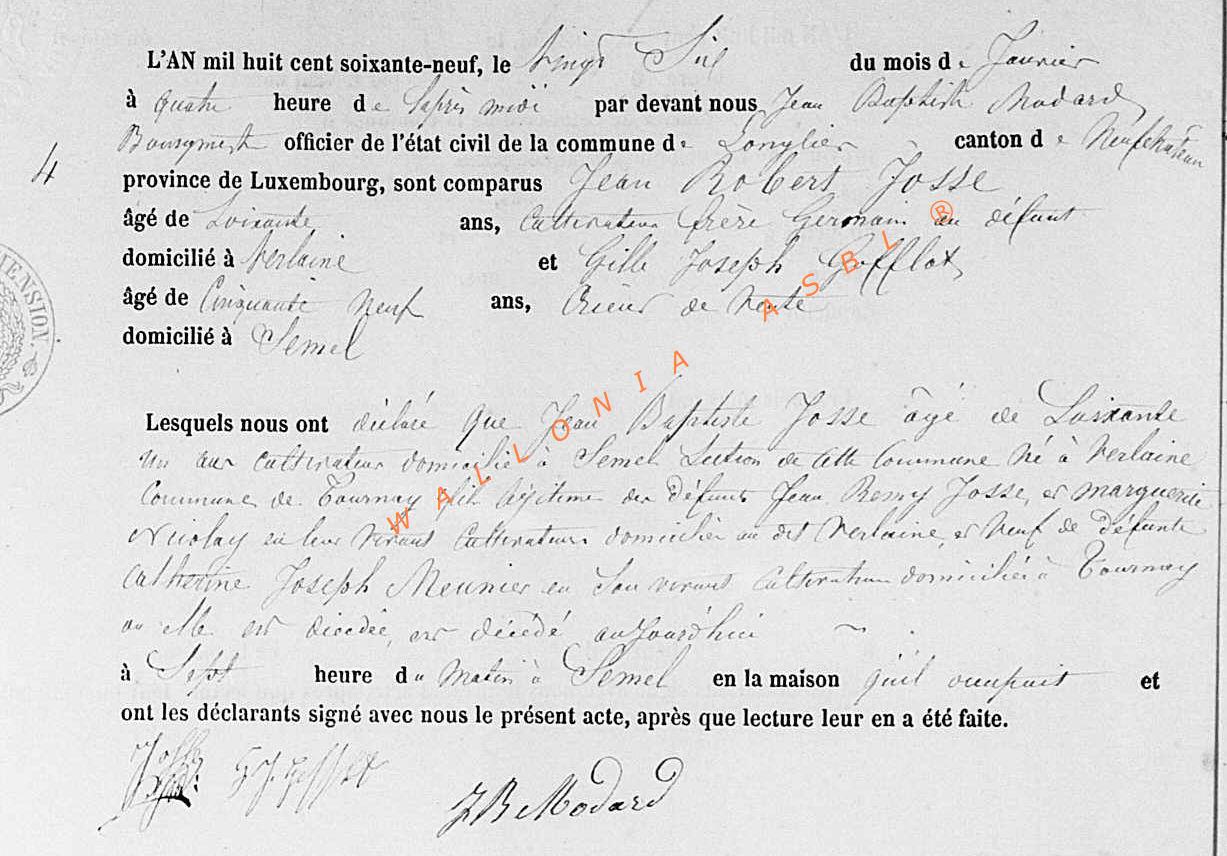 L'AN mil huit cent soixante-neuf, le Vingt Six du mois de Janvier
à quatre heure de l'après midi par devant nous Jean Baptiste Modard
Bourgmestre officier de l'état civil de la commune de Longlier canton de Neufchateau
4
province de Luxembourg, sont comparus Jean Robert Josse
âgé de Soixante ans, Cultivateur frère Germain au défunt
domicilié à Verlaine et Gille Joseph Gofflot
âgé de Cinquante Neuf ans, Crieur de Vente
domicilié à Semel
Lesquels nous ont déclaré que Jean Baptiste Josse âgé de Soixante
un ans cultivateur domicilié à Semel Section de cette Commune Né à Verlaine
Commune de Tournay fils légitime des Défunts Jean Remy Josse, et marguerite
Nicolay en leur vivant Cultivateurs domiciliés au dit Verlaine, et Veuf de Défunte
Catherine Joseph Meunier en Son vivant Cultivatrice domiciliée à Tournay
ou elle est décédée, est décédé aujourd'hui
à Sept heure du Matin à Semel en la maison qu'il occupait et
ont les déclarants signé avec nous le présent acte, après que lecture leur en a été faite.
Josse G J Gofflot
J B Modard
WALLONIA ASBL ®